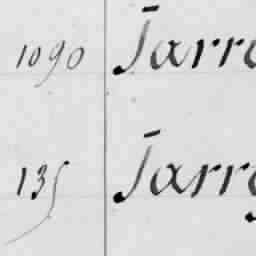 1090 Jarro
135 Jarro